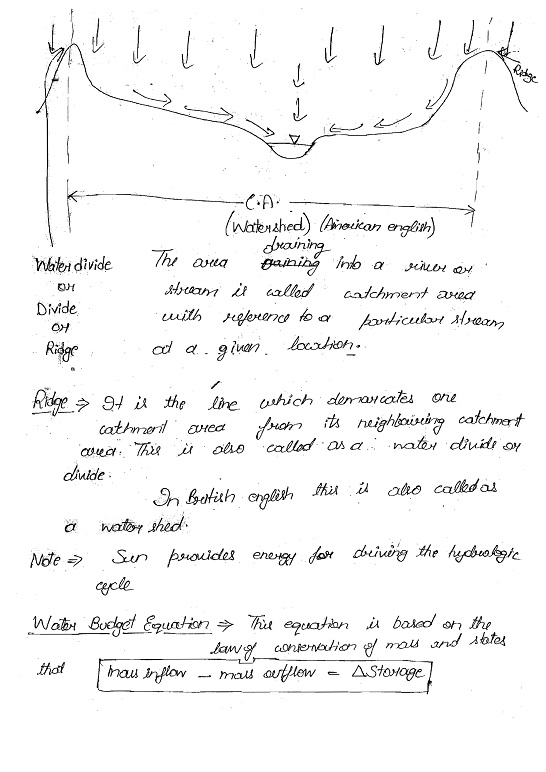 Ridge
C.A.
(Watershed) (American english)
draining
Water divide
or
Divide
or
Ridge
The area gaining into a river or
stream is called catchment area
with reference to a particular stream
at a given location.
Ridge ⇒ It is the line which demarcates one
catchment area from its neighbouring catchment
area. This is also called as a water divide or
divide.
In British english this is also called as
a water shed.
Note ⇒ Sun provides energy for driving the hydrologic
cycle
Water Budget Equation ⇒ This equation is based on the
law of conservation of mass and states
that mass inflow - mass outflow = ΔStorage